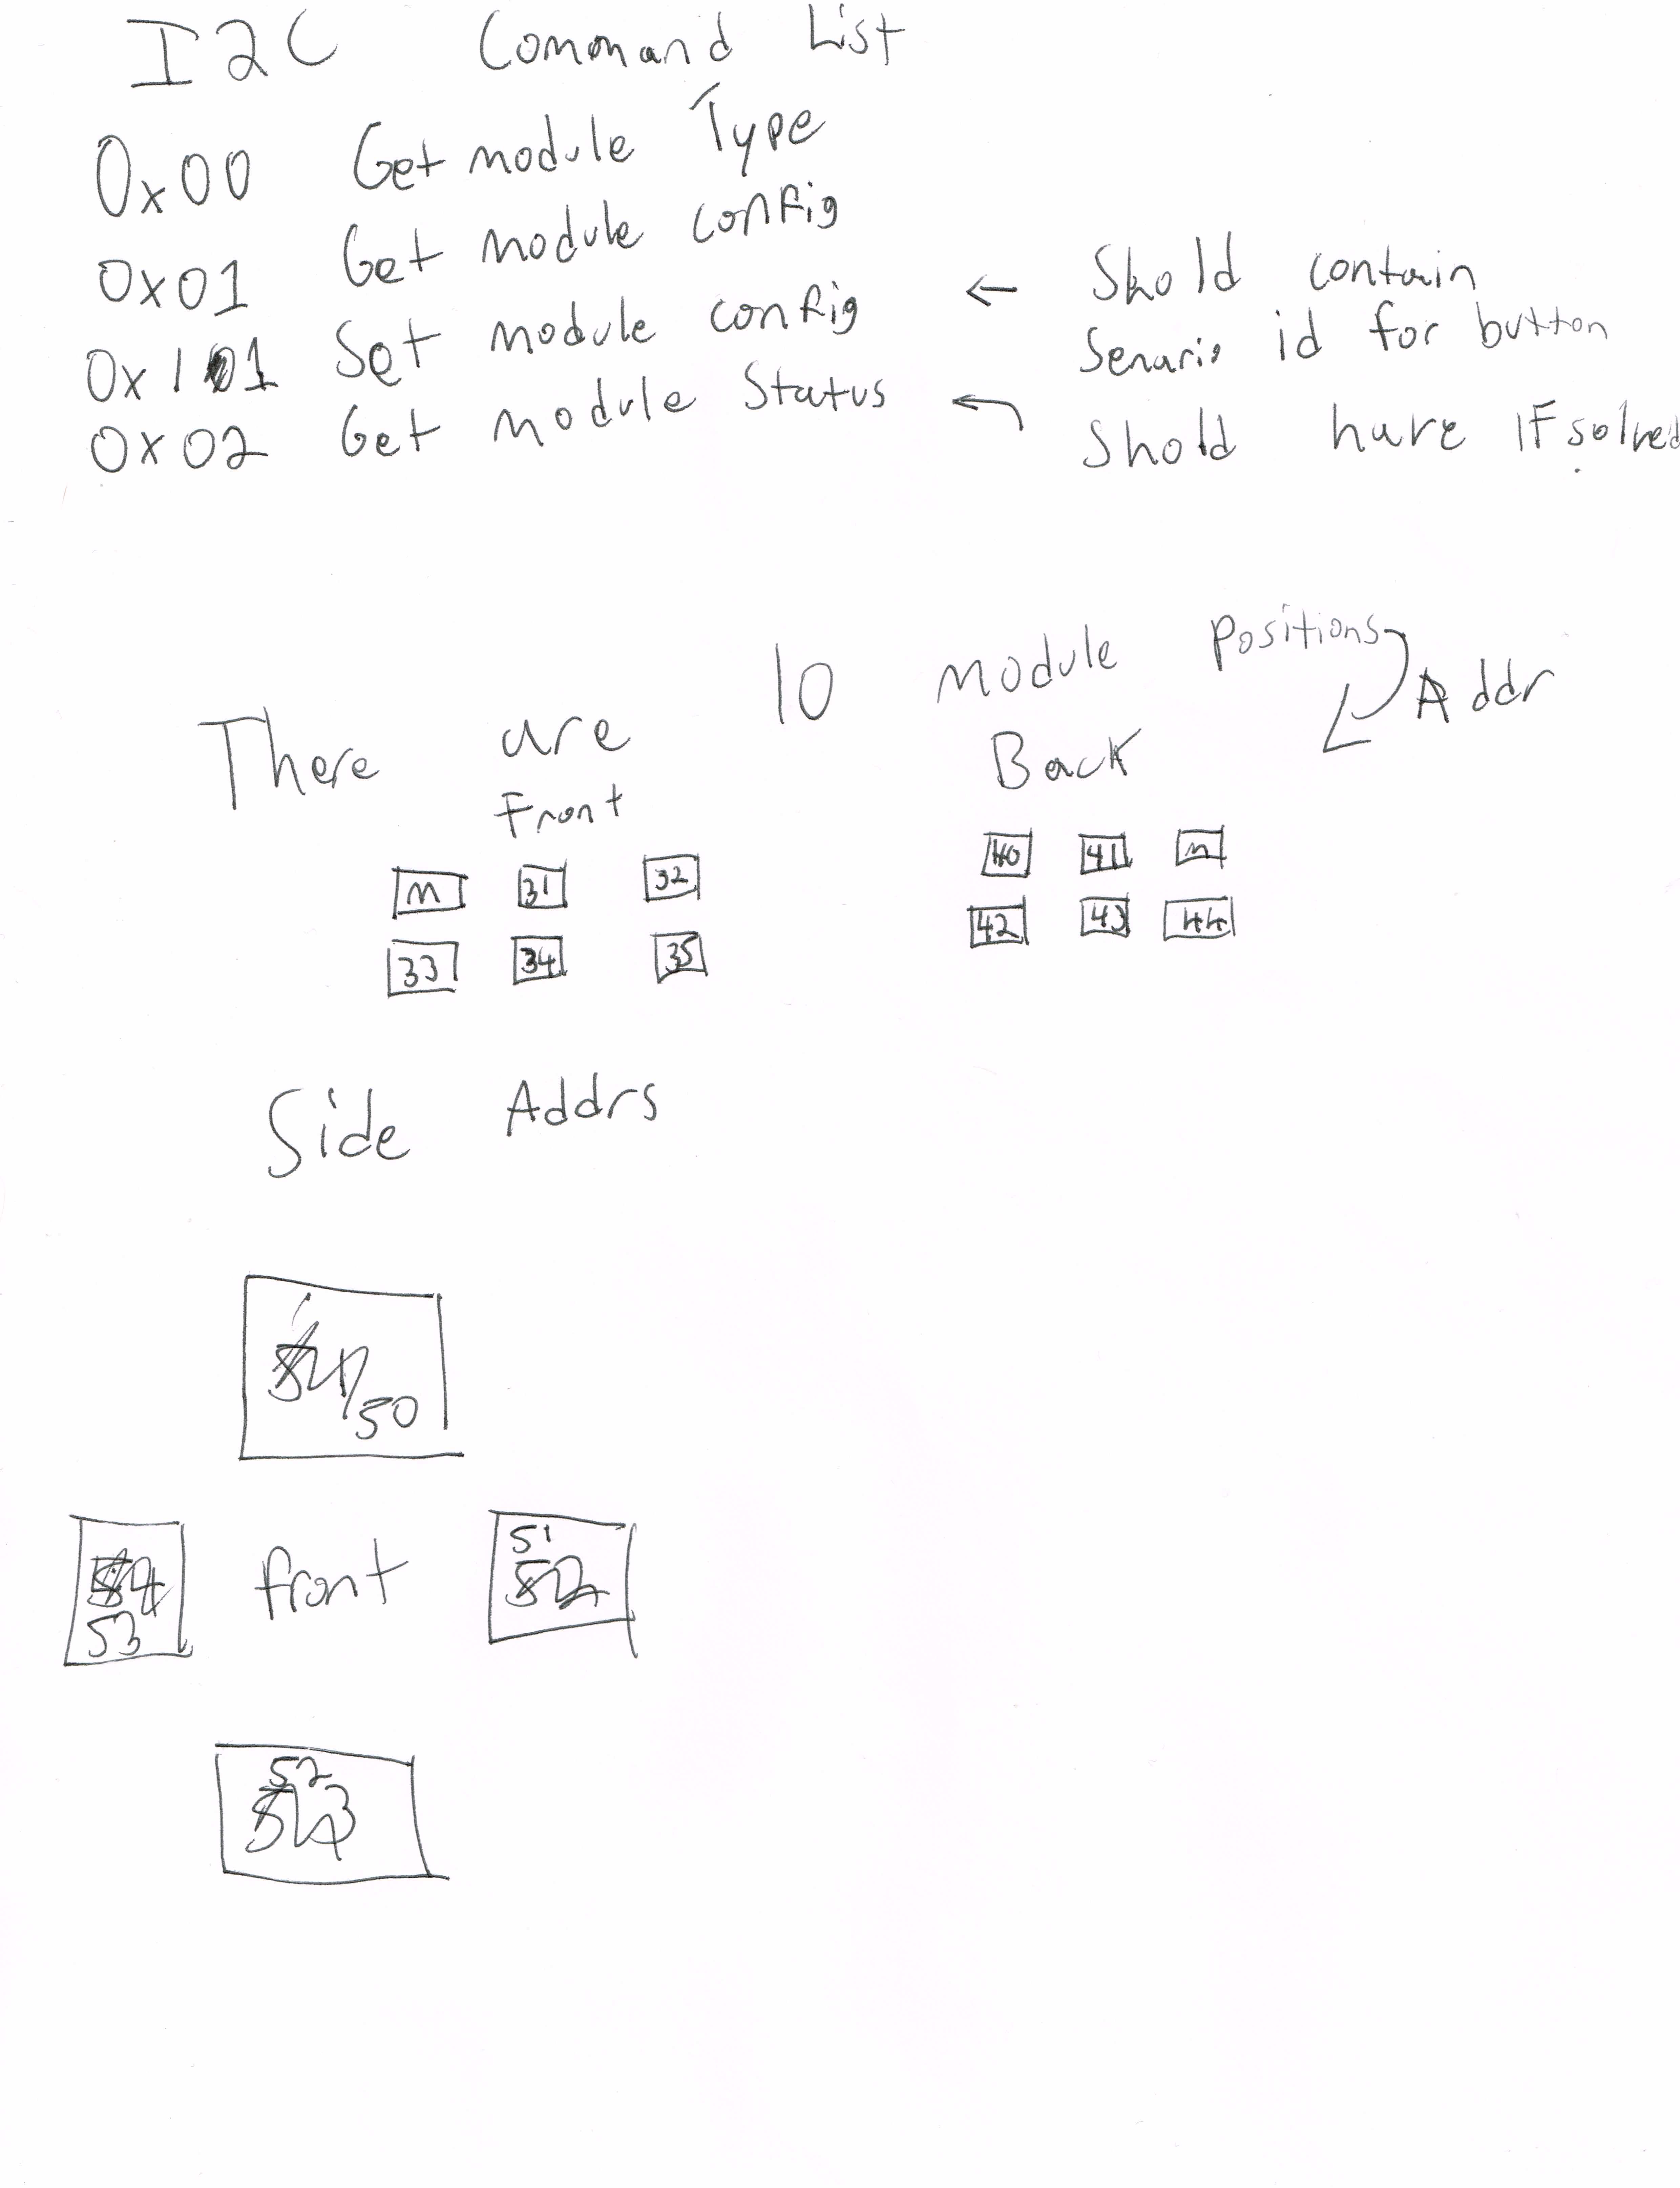 I2C Command List
0x00 Get module Type
0x01 Get module config
0x101 Set module config ← Shold contain
Senario id for button
0x02 Get module Status ← Shold have IF solved
There are 10 module positions
Addr
Front
M 31 32
33 34 35
Back
40 41 M
42 43 44
Side Addrs
50
53 front 51
52